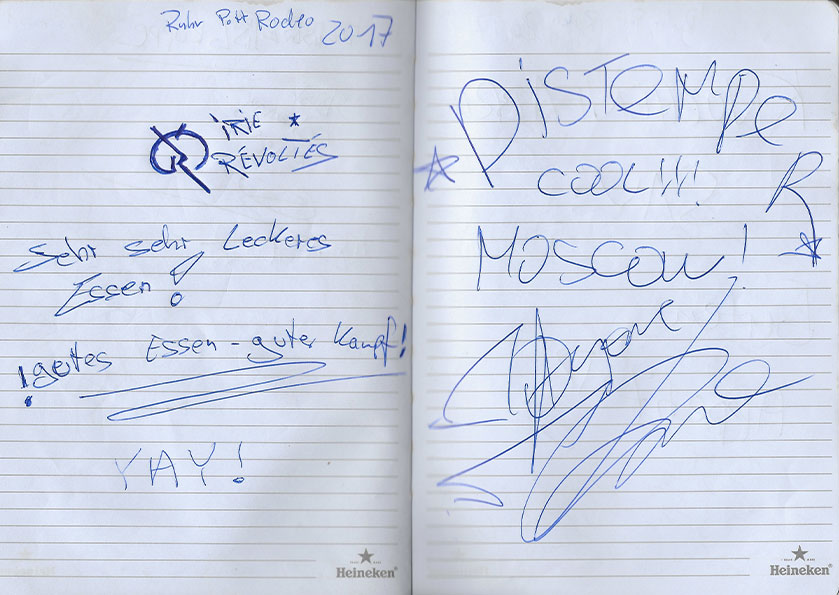 Ruhr Pott Rodeo 2017
IRIE
RÉVOLTÉS
Sehr sehr Leckeres
Essen!
!gutes Essen - guter Kampf!
YAY!
Heineken
DISTEMPER
COOL!!!
MOSCOW!
Heineken